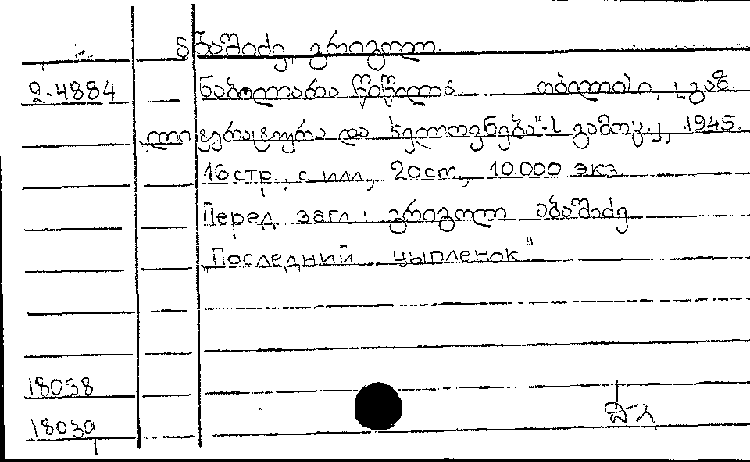 აბაშიძე, გრიგოლ.
2-4884 ნაბოლარა წიწილა თბილისი, „გაზ.
ლიტერატურა და ხელოვნება"-ს გამოც., 1945.
16 стр. с илл, 20cm, 10.000 экз
Перед загл: გრიგოლ აბაშიძე
"Последний цыпленок"
18038
18039